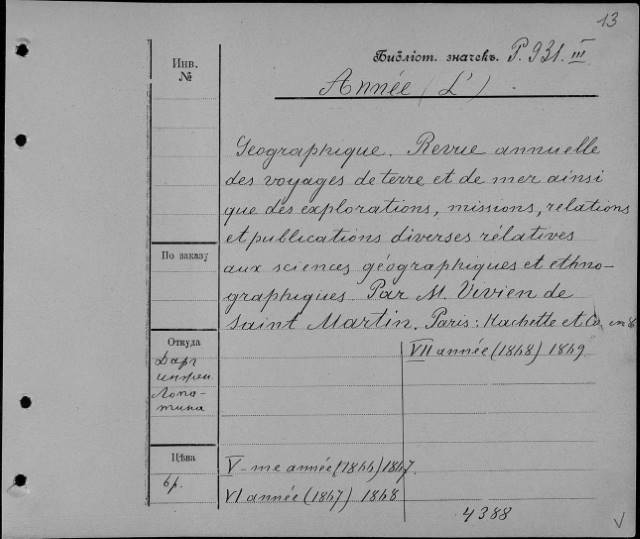 13
Инв.
№
Библіот. значекъ. P. 931. III
Année (L')
Geographique. Revue annuelle
des voyages de terre et de mer ainsi
que des explorations, missions, relations
et publications diverses rélatives
По заказу
aux sciences géographiques et ethno-
graphiques Par M. Vivien de
Saint Martin. Paris: Hachette et Co in 8
Откуда
VII année (1868) 1869
Даръ
инжен.
Лопа-
тина
Цѣна
V-me année (1866) 1867.
6р.
VI année (1867) 1868
4388